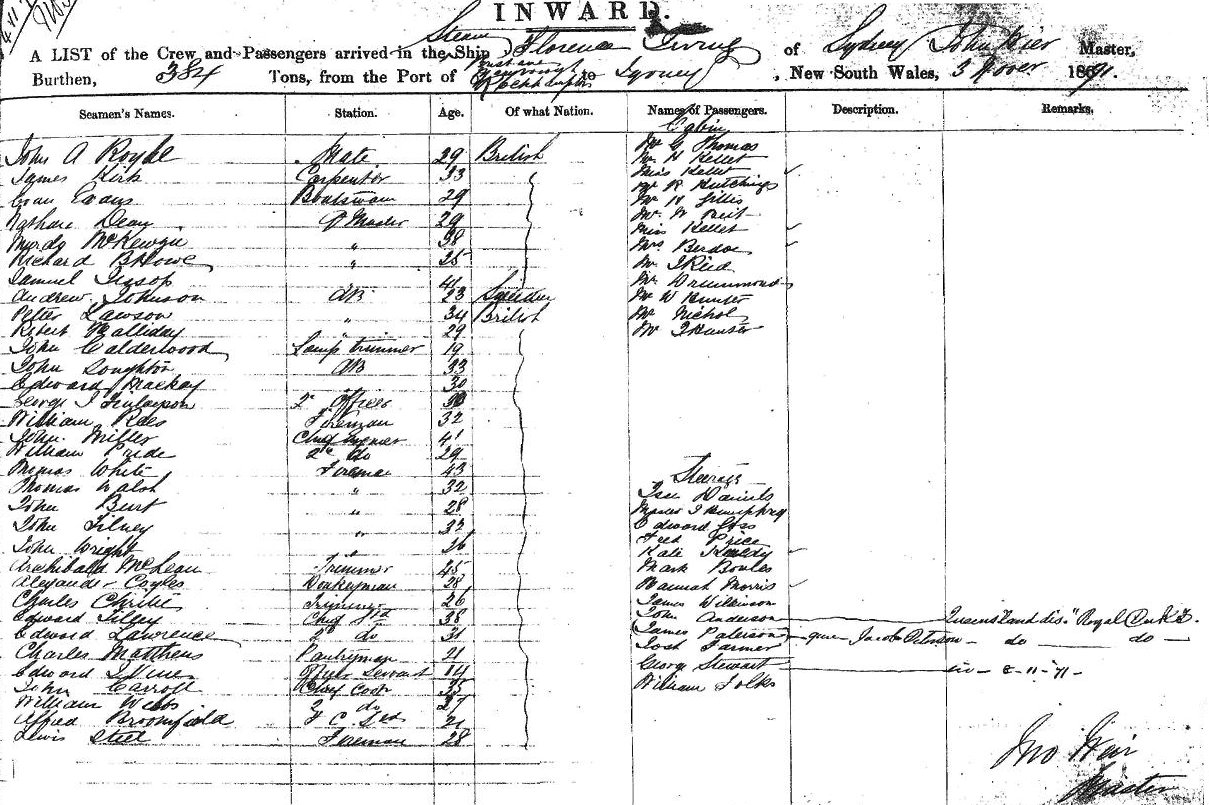 INWARD.
A LIST of the Crew and Passengers arrived in the Ship Steam Florence Irving of Sydney John Weir Master,
Burthen, 384 Tons, from the Port of Brisbane Rockhampton to Sydney, New South Wales, 3 Nover 1891.
Seamen's Names. Station. Age. Of what Nation. Names of Passengers. Description. Remarks.
Cabin
John A Royhl Mate 29 British Mr G Thomas
Mr H Kellet
James Kirk Carpenter 33 Miss Kellet
Mr R Hutchings
Evan Evans Boatswain 29 Mr H Gillis
Nathan Dean Q Master 29 Mr W
Miss Kellet
Murdy McKewyn " 38 Mrs Berdoe
Richard B Howe " 25 Mr J Reid
Samuel Jessop 41 Mr Drummond
Andrew Johnson AB 23 Sweden Mr W Hunter
Peter Lawson " 34 British Mr Nichol
Robert Halliday " 29 Mr J Hunter
John Calderwood Lamp trimmer 19
John Loughton AB 33
Edward Mackay 30
George J Finlayson 2d Officer 30
William Rees Fireman 32
John Miller Chief Engineer 41
William Pride 2d do 29
Thomas White Fireman 43 Steerage
Thomas Walsh " 32 Daniels
John Burt " 28 Humphrey
John Filney " 32 Edward Goss
John Wright " 26 Fred Price
Kate
Archibald McLean Trimmer 45 Mark Bowles
Alexander Coyles Donkeyman 28 Hannah Morris
Charles Christie Trimmer 26 James Wilkinson
Edward Tilley Chief Std 38 John Anderson Queensland dis. "Royal
Edward Lawrence 2d do 31 James Paterson Jacob Peterson - do - do -
Charles Matthews Pantryman 21 Farmer
Edward 14 George Stewart 8-11-91
John Carroll Chief Cook 35 William Folks
William Webbs 2 do 27
Alfred Broomfield F C Std 21
Lewis Steel Fireman 28
Jno Weir
Master